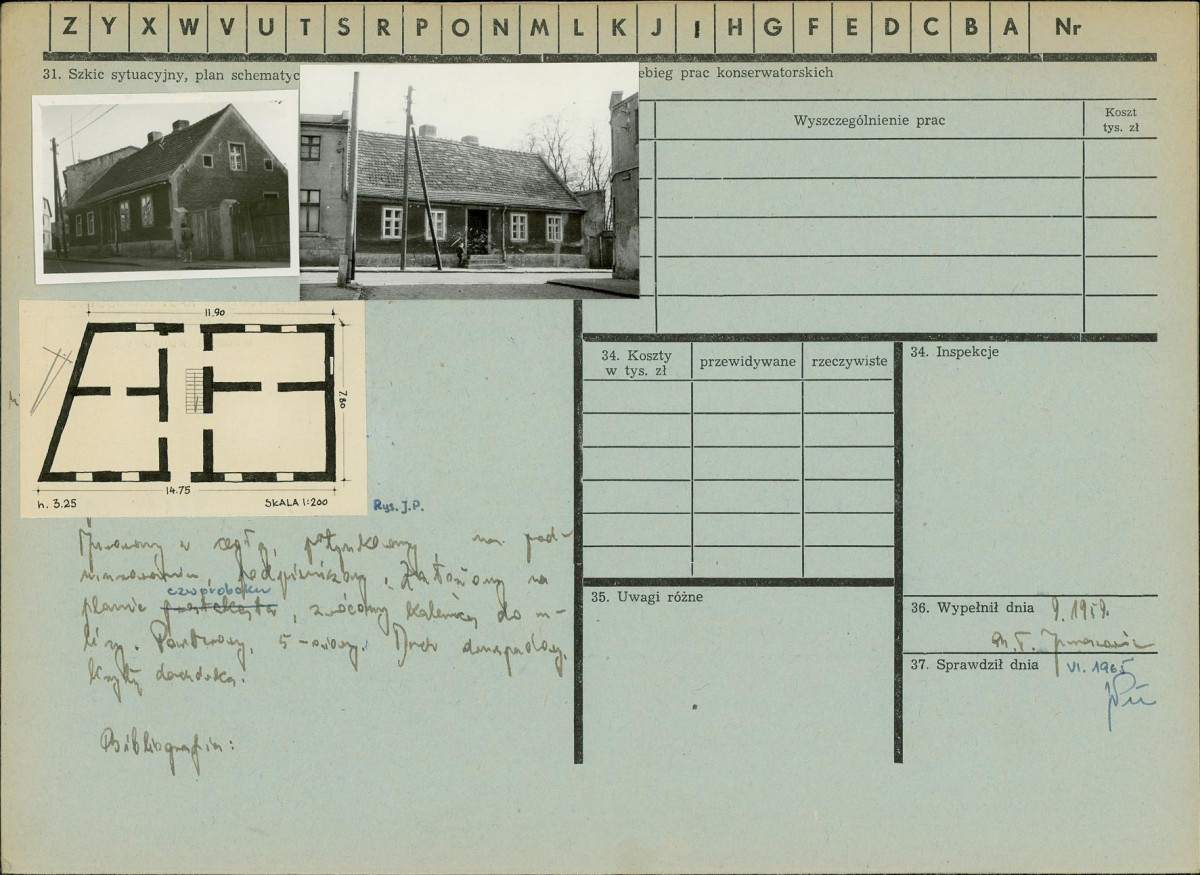 Z Y X W V U T S R P O N M L K J I H G F E D C B A Nr
31. Szkic sytuacyjny, plan schematyc
ebieg prac konserwatorskich
Wyszczególnienie prac
Koszt
tys. zł
11.90
7.80
14.75
h. 3.25
SKALA 1:200
Rys. J.P.
Murowany z cegły, potynkowany, na pod-
murowaniu, podpiwniczony. Założony na
czworoboku
planie prostokąta, zwrócony kalenicą do u-
licy. Parterowy, 5-osiowy. Dach dwuspadowy,
kryty dachówką.
Bibliografia:
34. Koszty
w tys. zł
przewidywane
rzeczywiste
34. Inspekcje
35. Uwagi różne
36. Wypełnił dnia 9.1959.
37. Sprawdził dnia VI. 1965